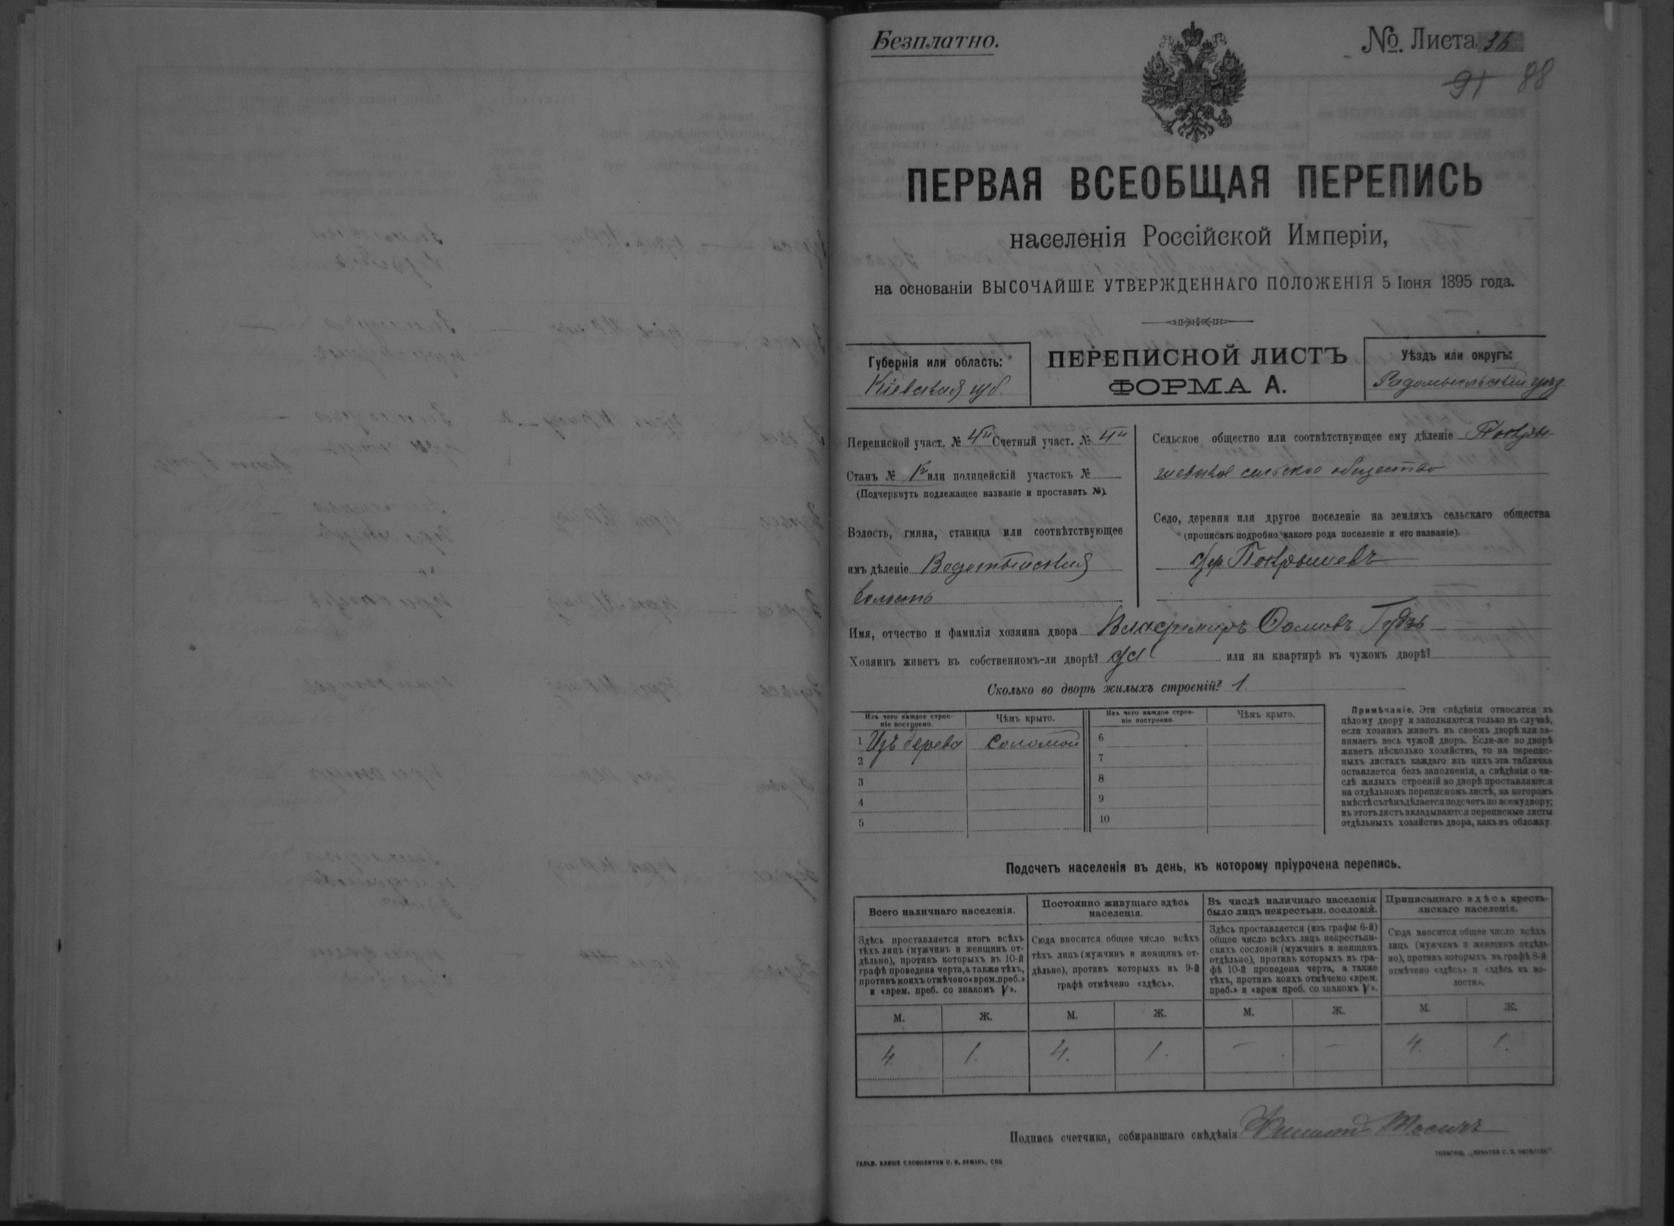 Безплатно.
№. Листа 36
91 88
ПЕРВАЯ ВСЕОБЩАЯ ПЕРЕПИСЬ
населенія Россійской Имперіи,
на основаніи ВЫСОЧАЙШЕ УТВЕРЖДЕННАГО ПОЛОЖЕНІЯ 5 Іюня 1895 года.
Губернія или область:
Кіевская губ.
ПЕРЕПИСНОЙ ЛИСТЪ
ФОРМА А.
Уѣздъ или округъ:
Радомысльскій уѣзд
Переписной участ. № 4й Счетный участ. № 4й
Станъ № 1й или полицейскій участокъ №
(Подчеркнуть подлежащее названіе и проставить №).
Волость, гмина, станица или соотвѣтствующее
имъ дѣленіе
волость
Сельское общество или соотвѣтствующее ему дѣленіе Покры-
шевское сельское общество
Село, деревня или другое поселеніе на земляхъ сельскаго общества
(прописать подробно какого рода поселеніе и его названіе).
дер Покрышевъ
Имя, отчество и фамилія хозяина двора Владимиръ Ѳомовъ Гудзь
Хозяинъ живетъ въ собственномъ-ли дворѣ? да или на квартирѣ въ чужомъ дворѣ?
Сколько во дворѣ жилыхъ строеній? 1
Изъ чего каждое строе-
ніе построено.
Чѣмъ крыто.
1 Изъ дерева соломой
2
3
4
5
Изъ чего каждое строе-
ніе построено.
Чѣмъ крыто.
6
7
8
9
10
Примѣчаніе. Эти свѣдѣнія относятся къ
цѣлому двору и заполняются только въ случаѣ,
если хозяинъ живетъ въ своемъ дворѣ или за-
нимаетъ весь чужой дворъ. Если-же во дворѣ
живетъ нѣсколько хозяйствъ, то на перепис-
ныхъ листахъ каждаго изъ нихъ эта табличка
оставляется безъ заполненія, а свѣдѣнія о чи-
слѣ жилыхъ строеній во дворѣ проставляются
на отдѣльномъ переписномъ листѣ, на которомъ
вмѣстѣ съ тѣмъ дѣлается подсчетъ по всему двору;
въ этотъ листъ вкладываются переписные листы
отдѣльныхъ хозяйствъ двора, какъ въ обложку.
Подсчетъ населенія въ день, къ которому пріурочена перепись.
Всего наличнаго населенія.
Здѣсь проставляется итогъ всѣхъ
тѣхъ лицъ (мужчинъ и женщинъ от-
дѣльно), противъ которыхъ въ 10-й
графѣ проведена черта, а также тѣхъ,
противъ коихъ отмѣчено «врем. преб.»
и «врем. преб. со знакомъ V».
М. Ж.
4. 1.
Постоянно живущаго здѣсь
населенія.
Сюда вносится общее число всѣхъ
тѣхъ лицъ (мужчинъ и женщинъ от-
дѣльно), противъ которыхъ въ 9-й
графѣ отмѣчено «здѣсь».
М. Ж.
4. 1.
Въ числѣ наличнаго населенія
было лицъ некрестьян. сословій.
Здѣсь проставляется (изъ графы 6-й)
общее число всѣхъ лицъ некрестьян-
скихъ сословій (мужчинъ и женщинъ
отдѣльно), противъ которыхъ въ гра-
фѣ 10-й проведена черта, а также
тѣхъ, противъ коихъ отмѣчено «врем.
преб.» и «врем преб. со знакомъ V».
М. Ж.
— —
Приписаннаго здѣсь кресть-
янскаго населенія.
Сюда вносится общее число всѣхъ
лицъ (мужчинъ и женщинъ отдѣль-
но), противъ которыхъ въ графѣ 8-й
отмѣчено «здѣсь» и «здѣсь въ во-
лости».
М. Ж.
4. 1.
Подпись счетчика, собиравшаго свѣдѣнія